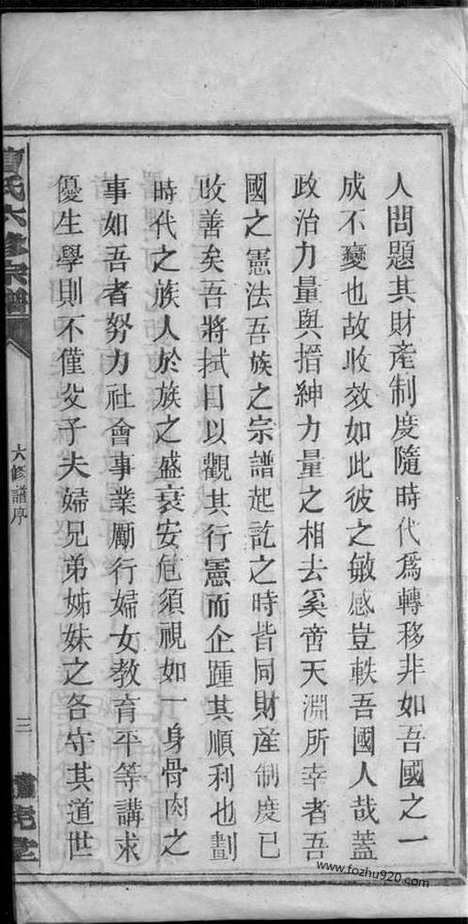 人問題其財產制度隨時代爲轉移非如吾國之一
成不變也故收效如此彼之敏感豈軼吾國人哉蓋
政治力量與搢紳力量之相去奚啻天淵所幸者吾
國之憲法吾族之宗譜起訖之時皆同財產制度已
收善矣吾將拭目以觀其行憲而企踵其順利也劃
時代之族人於族之盛衰安危須視如一身骨肉之
事如吾者努力社會事業勵行婦女教育平等講求
優生學則不僅父子夫婦兄弟姊妹之各守其道世
氏六修宗譜
六修譜序
三
www.fozhu920.com